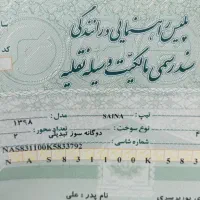 پلیس راهنمایی و رانندگی
سند رسمی مالکیت وسیله نقلیه
کد
تیپ: SAINA مدل: ۱۳۹۸
نوع سوخت: دوگانه سوز تبدیلی تعداد محور: ۲
شماره شاسی: NAS831100K5833792
N A S 8 3 1 1 0 0 K 5 8 3
نام پدر: علی